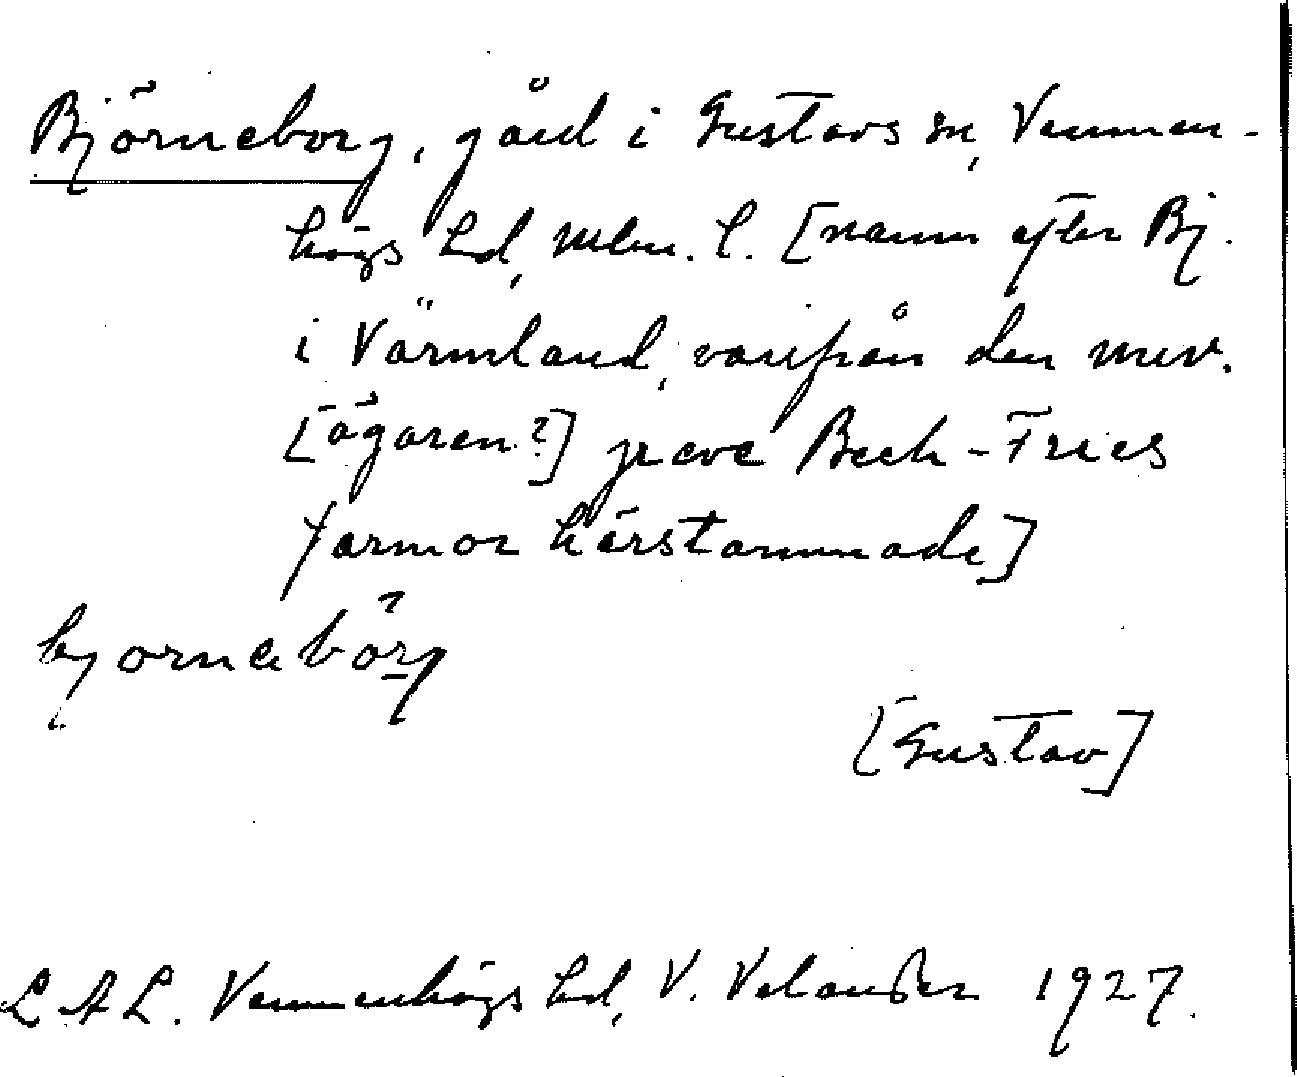 Björneborg, gård i Gustavs sn, Vemmen-
högs hd, Mlm. l. [namn efter Bj.
i Värmland, varifrån den nuv.
[ägaren?] greve Beck-Friis
farmor härstammade]
bjornebörg
[Gustav]
LAL. Vemmenhögs hd, V. Velander 1927.